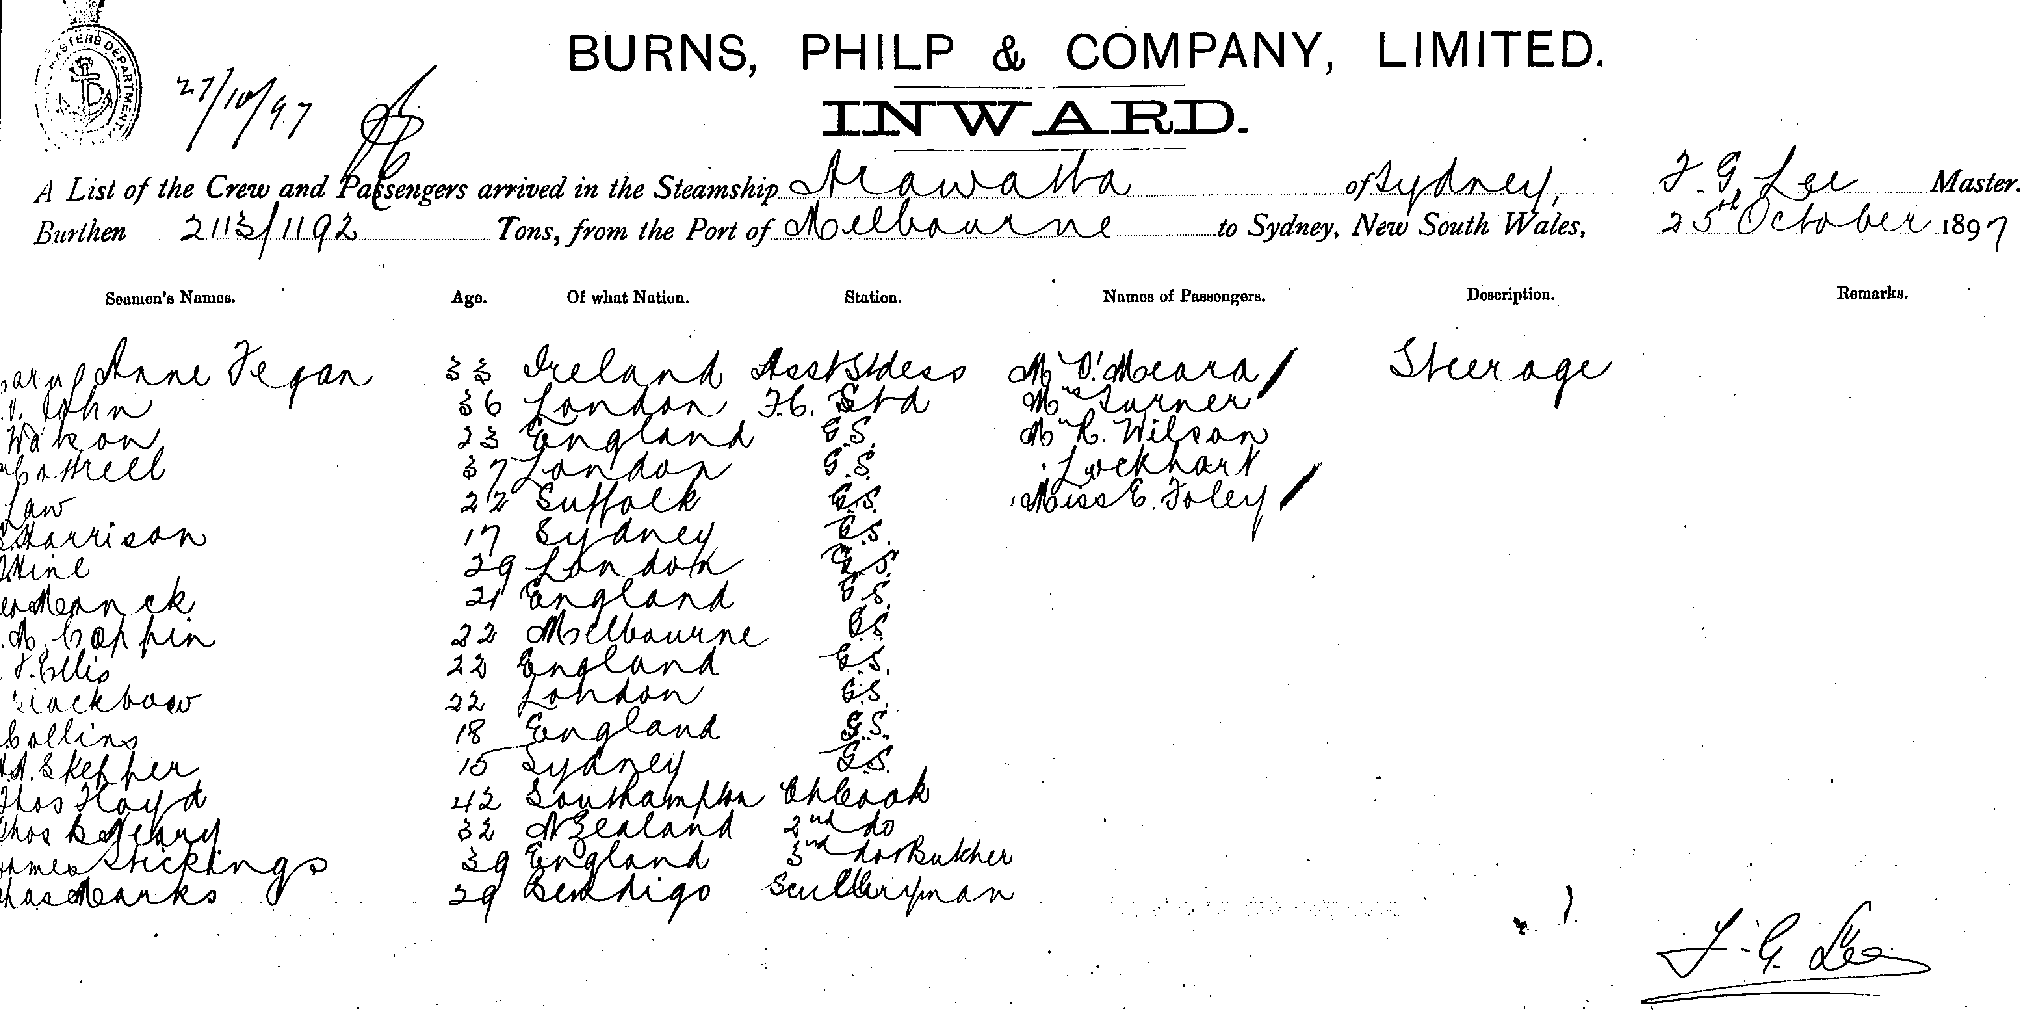 BURNS, PHILP & COMPANY, LIMITED.
INWARD.
27/10/97
A List of the Crew and Passengers arrived in the Steamship Arawatta of Sydney, F. G. Lee Master.
Burthen 2113/1192 Tons, from the Port of Melbourne to Sydney, New South Wales, 25th October 1897
Seamen's Names. Age. Of what Nation. Station. Names of Passengers. Description. Remarks.
Anne Fegan 33 Ireland Asst Stdess Mr O'Meara Steerage
John 36 London F.C. Std Mrs Turner
Watson 23 England G.S. Mr R. Wilson
Cottrell 37 London G.S. Lockhart
Law 22 Suffolk G.S. Miss E. Foley
Harrison 17 Sydney G.S.
Hine 29 London G.S.
21 England G.S.
Coppin 22 Melbourne G.S.
Ellis 22 England G.S.
22 London G.S.
Collins 18 England G.S.
Skepper 15 Sydney G.S.
Thos Floyd 42 Southampton Ch Cook
32 N Zealand 2nd do
Stickings 39 England 3rd do & Butcher
Marks 29 Bendigo Sculleryman
F. G. Lee